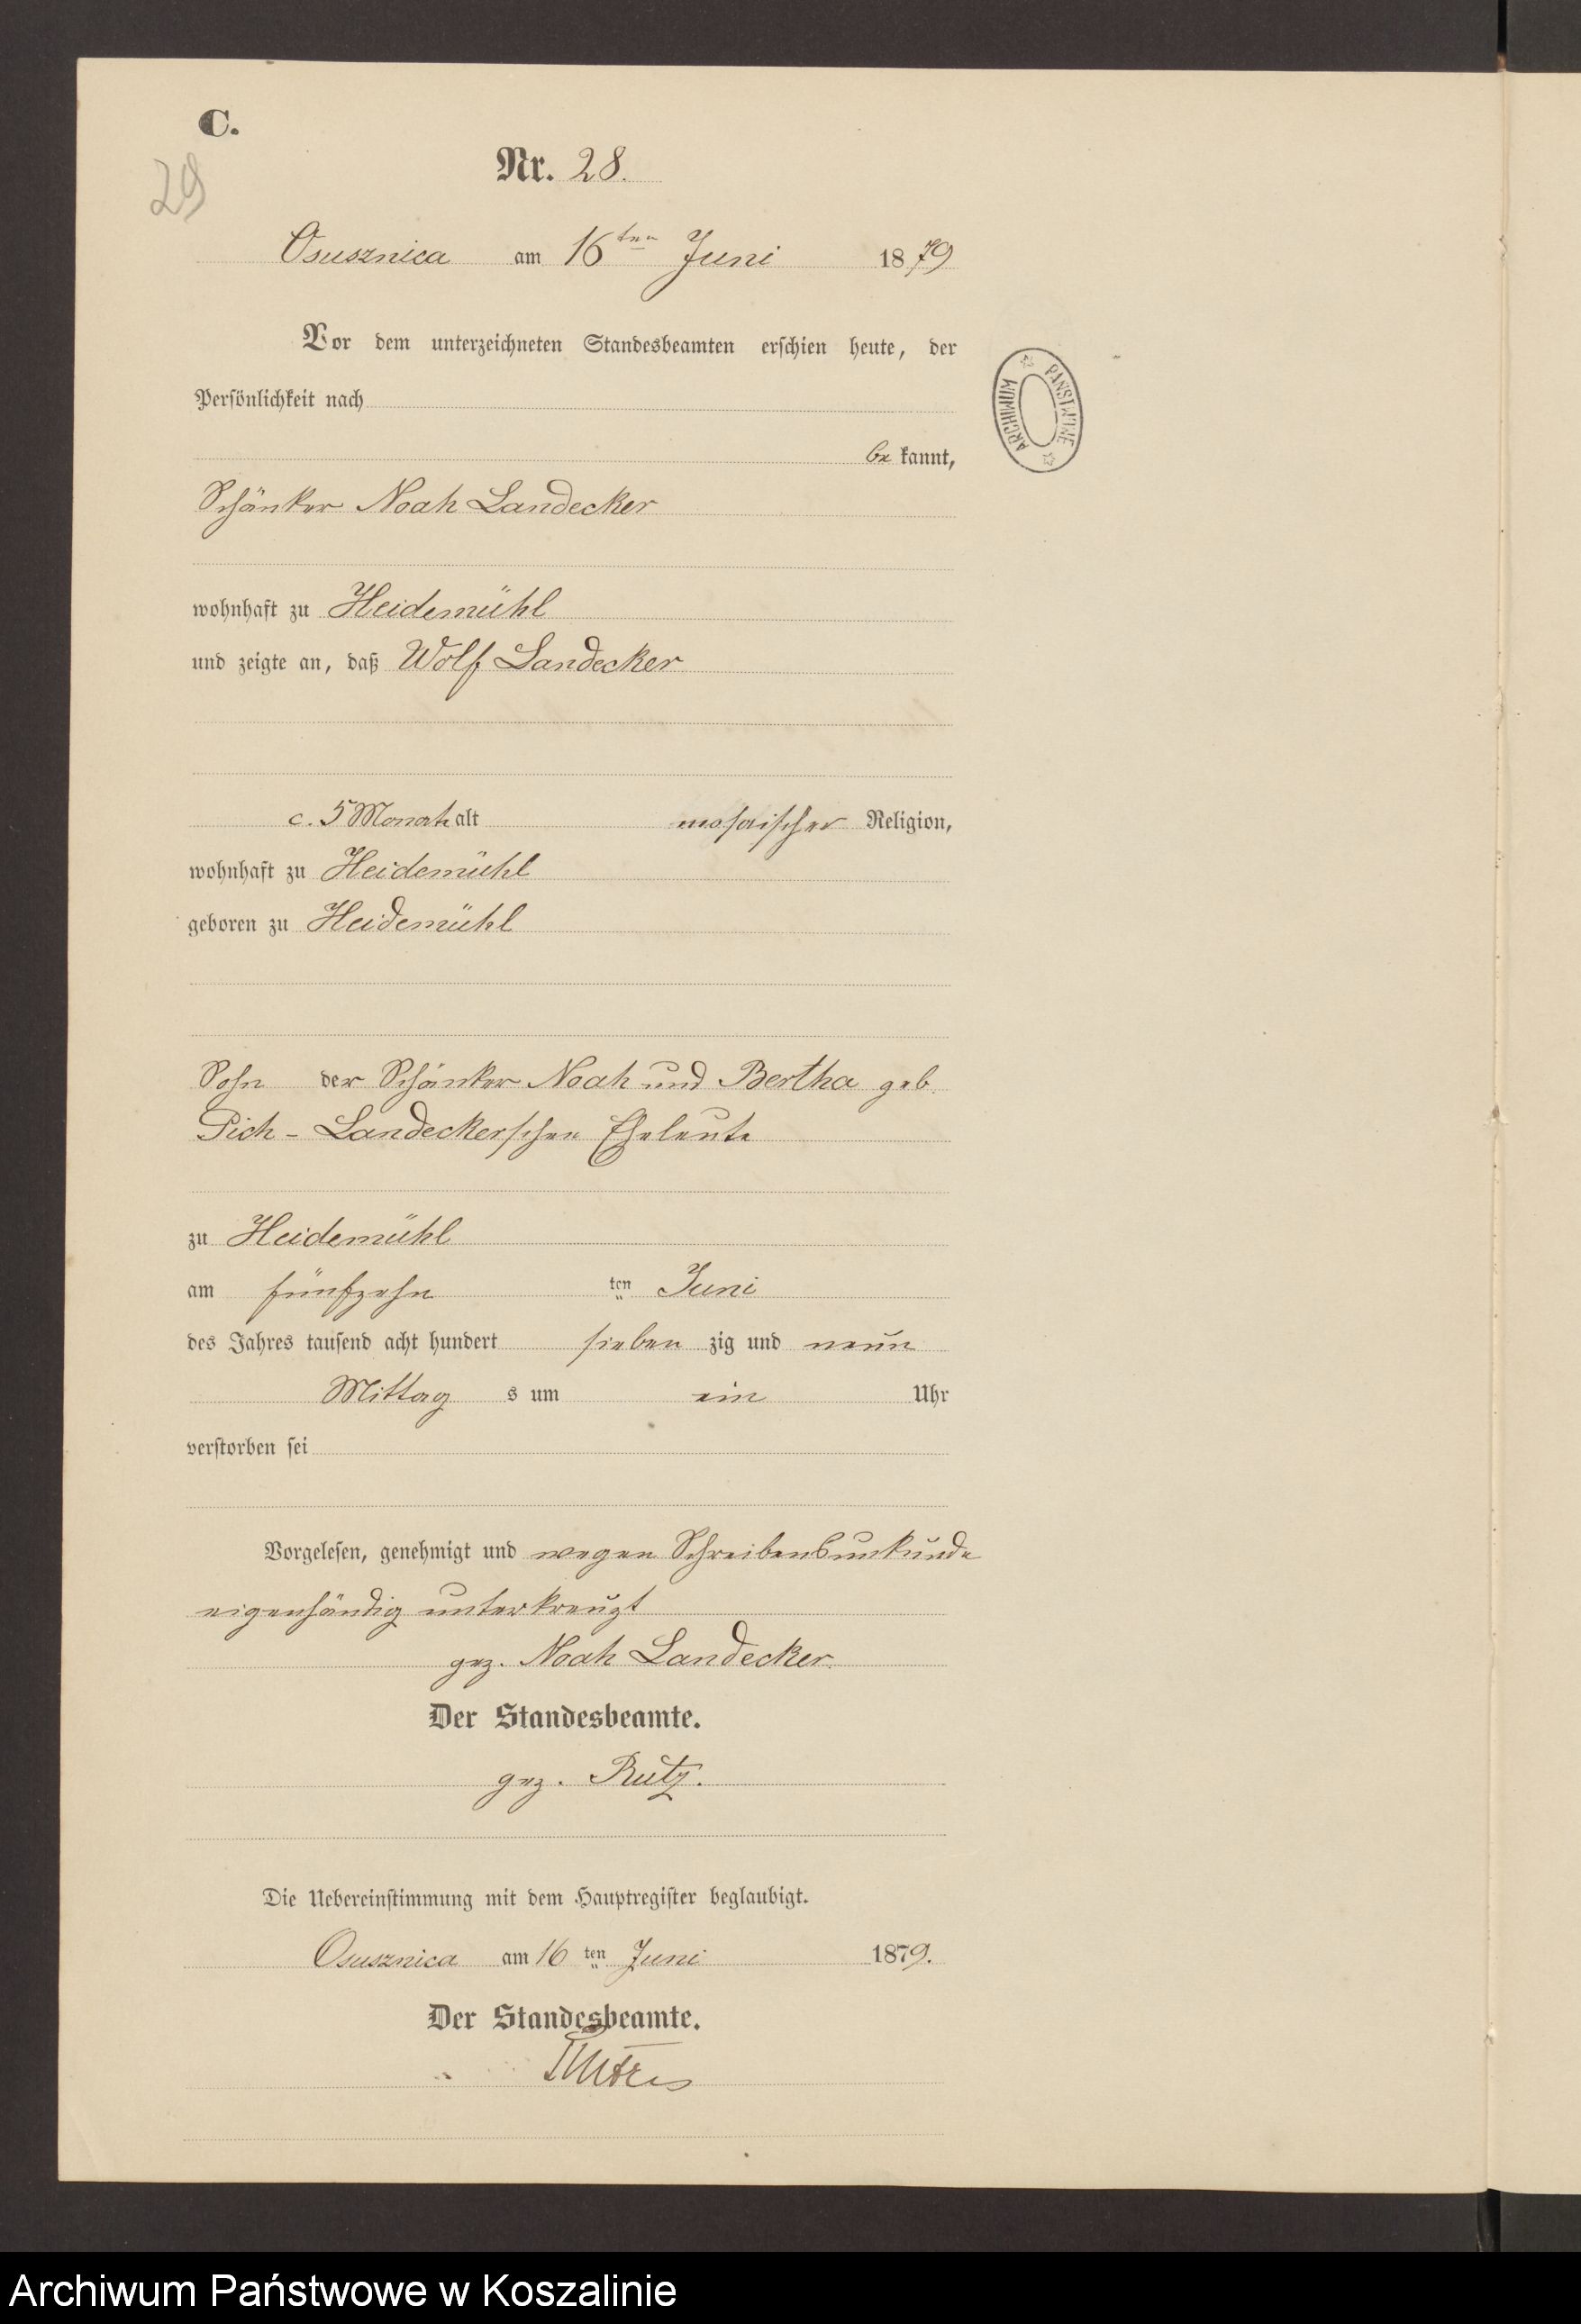 C.
29
Nr. 28.
Osusznica am 16ten Juni 1879
Vor dem unterzeichneten Standesbeamten erschien heute, der
Persönlichkeit nach
bekannt,
Schänker Noah Landecker
wohnhaft zu Heidemühl
und zeigte an, daß Wolf Landecker
c. 5 Monate alt mosaischer Religion,
wohnhaft zu Heidemühl
geboren zu Heidemühl
Sohn der Schänker Noah und Bertha geb.
Pich - Landeckerschen Eheleute
zu Heidemühl
am fünfzehn ten Juni
des Jahres tausend acht hundert siebenzig und neun
Mittags um ein Uhr
verstorben sei
Vorgelesen, genehmigt und wegen Schreibensunkunde
eigenhändig unterkreuzt
gez. Noah Landecker.
Der Standesbeamte.
gez. Rutz.
Die Uebereinstimmung mit dem Hauptregister beglaubigt.
Osusznica am 16ten Juni 1879.
Der Standesbeamte.
ARCHIWUM PAŃSTWOWE
Archiwum Państwowe w Koszalinie